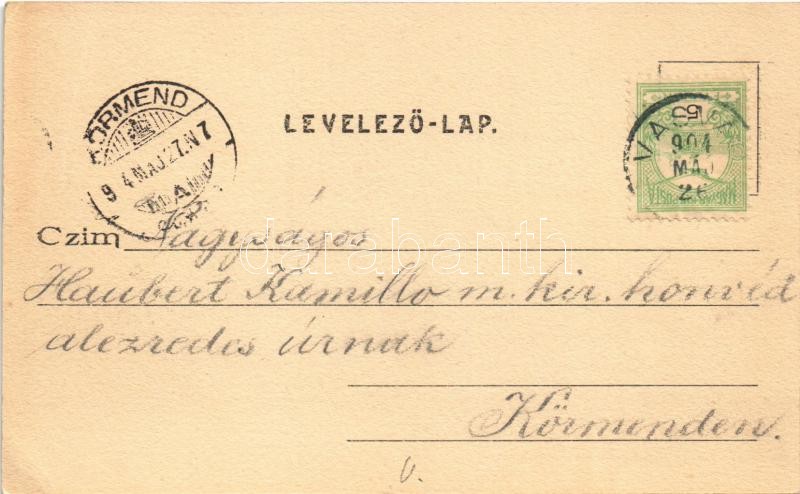 LEVELEZŐ-LAP.
KÖRMEND
94 MÁJ 27. N 7
5
904
MÁJ
26
Czim Nagyságos
darabanth
Haubert Kamillo m. kir. honvéd
alezredes úrnak
Körmenden.
v.